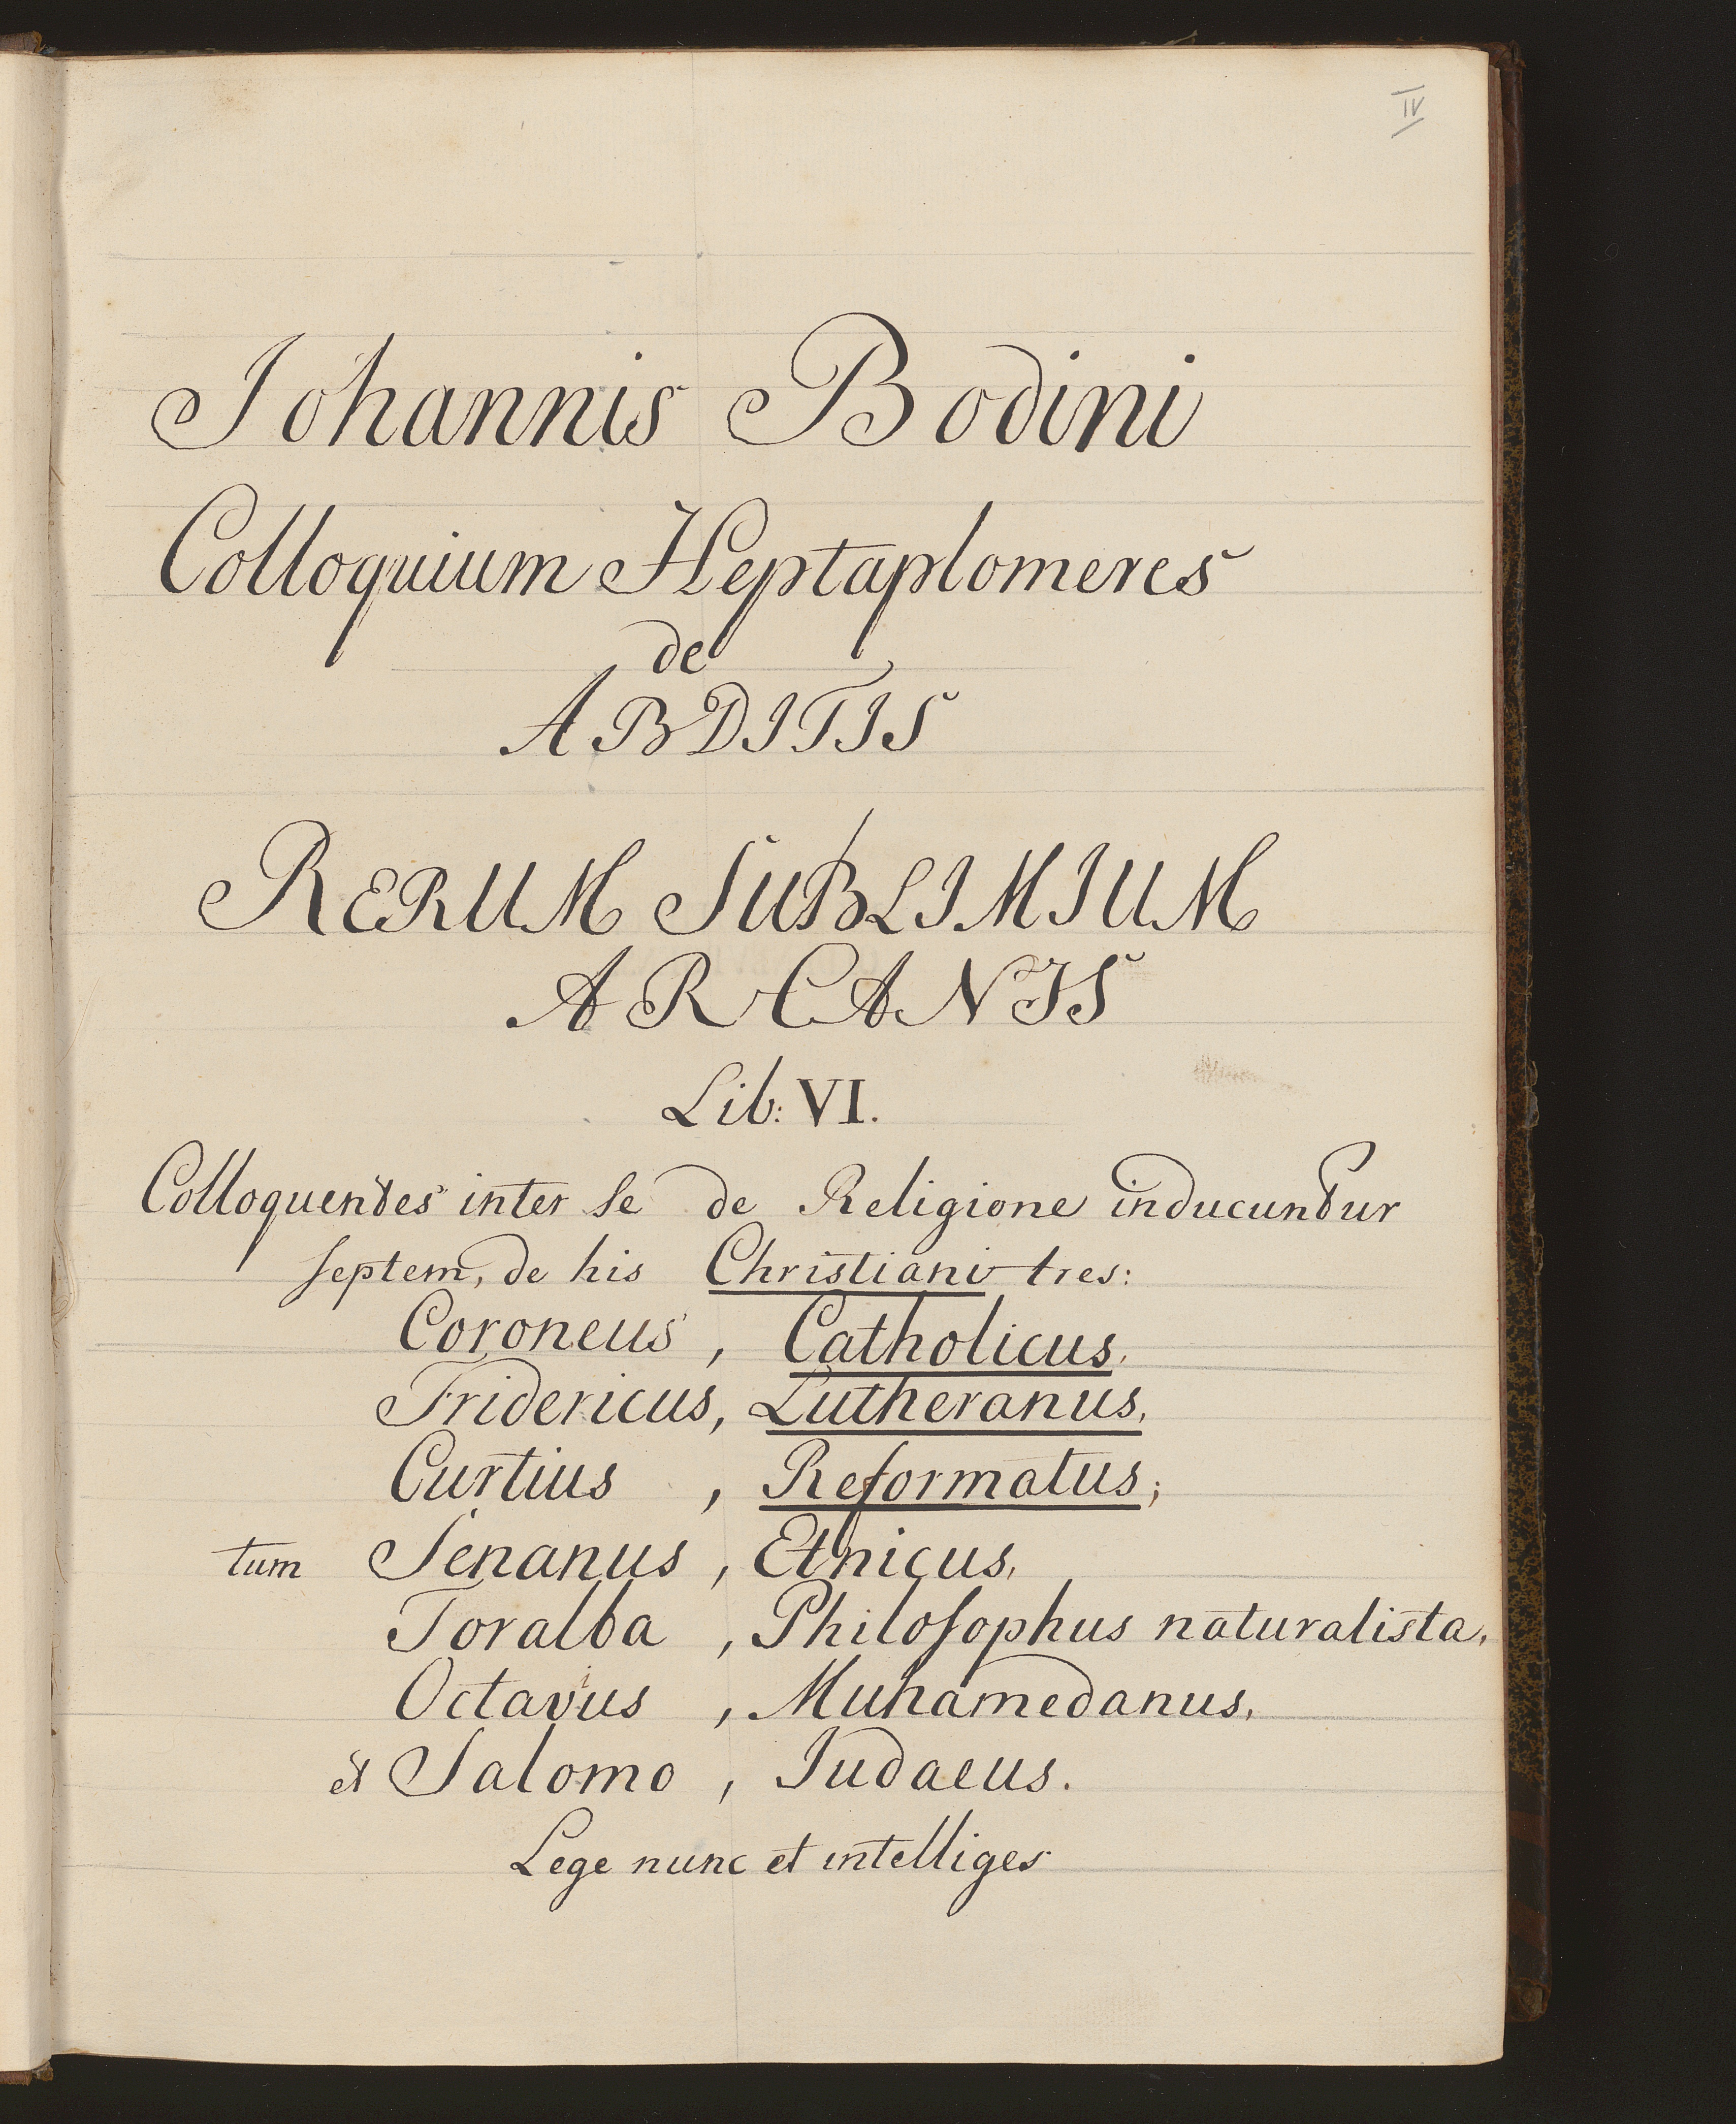 IV
Johannis Bodini
Colloquium Heptaplomeres
de
ABDITIS
RERUM SUBLIMIUM
ARCANIS
Lib: VI.
Colloquentes inter se de Religione inducuntur
septem, de his Christiani tres:
Coroneus, Catholicus.
Fridericus, Lutheranus.
Curtius, Reformatus;
tum Senanus, Etnicus,
Toralba, Philosophus naturalista,
Octavius, Muhamedanus,
et Salomo, Judaeus.
Lege nunc et intelliges